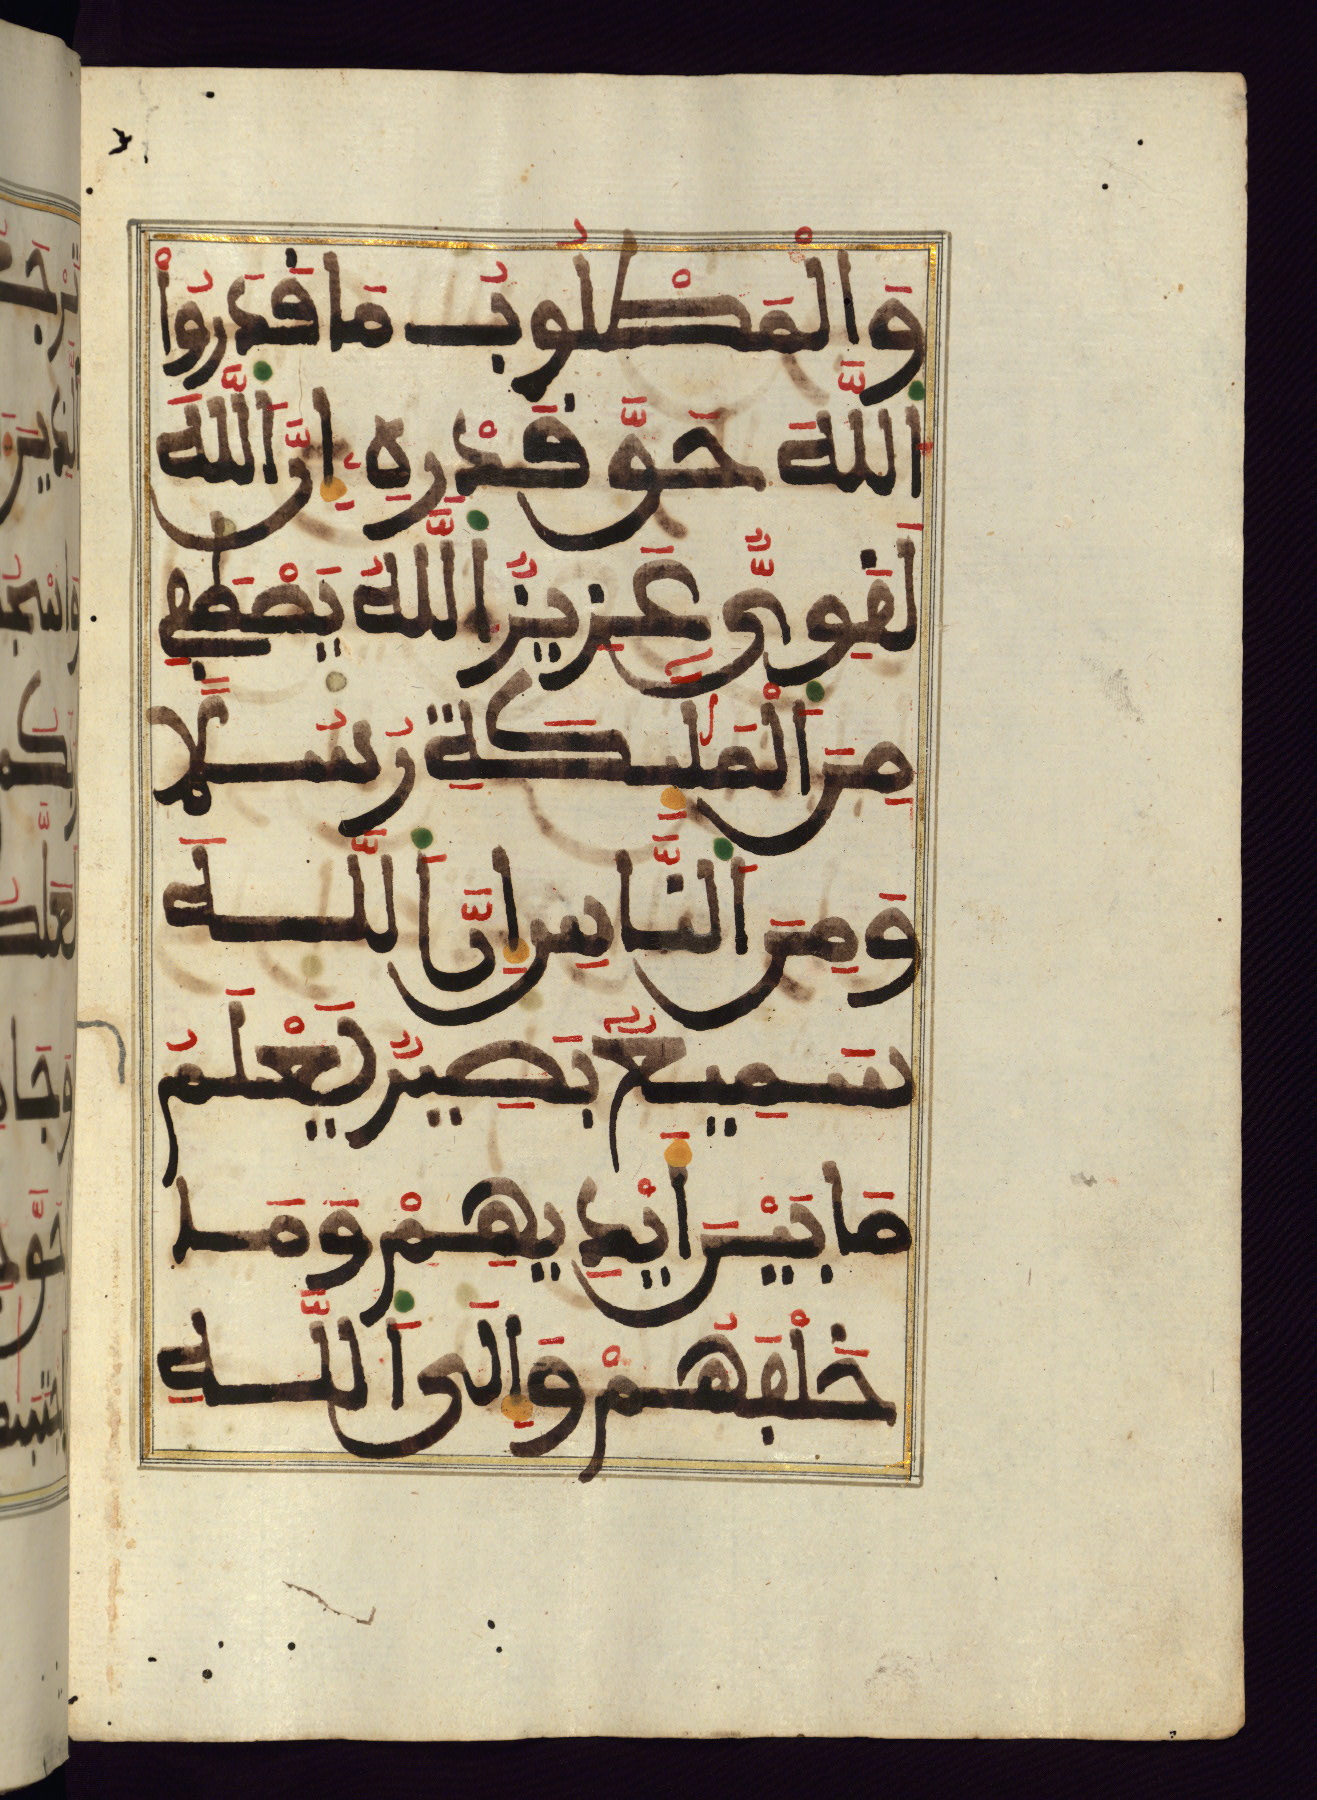 وَالْمَطْلُوبُ مَا قَدَرُواْ
اللَّهَ حَقَّ قَدْرِهِ إِنَّ اللَّهَ
لَقَوِيٌّ عَزِيزٌ اللَّهُ يَصْطَفِي
مِنَ الْمَلَٰٓئِكَةِ رُسُلًا
وَمِنَ النَّاسِ إِنَّ اللَّهَ
سَمِيعٌ بَصِيرٌ يَعْلَمُ
مَا بَيْنَ أَيْدِيهِمْ وَمَا
خَلْفَهُمْ وَإِلَى اللَّهِ